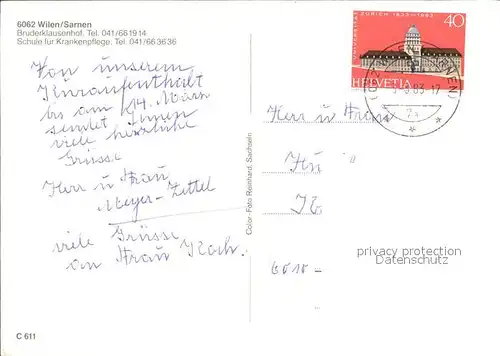 6062 Wilen/Sarnen
Bruderklausenhof. Tel. 041/661914
Schule für Krankenpflege. Tel. 041/663636
Von unserem
Kuraufenthalt
bis am 14. März
sendet Ihnen
viele herzliche
Grüsse
Herr u Frau
Meyer-Zettel
viele Grüsse
an Frau Koch.
C 611
Color-Foto Reinhard, Sachseln
UNIVERSITÄT ZÜRICH 1833-1983
40
HELVETIA
83-17
Herr u Frau
6010-
privacy protection
Datenschutz